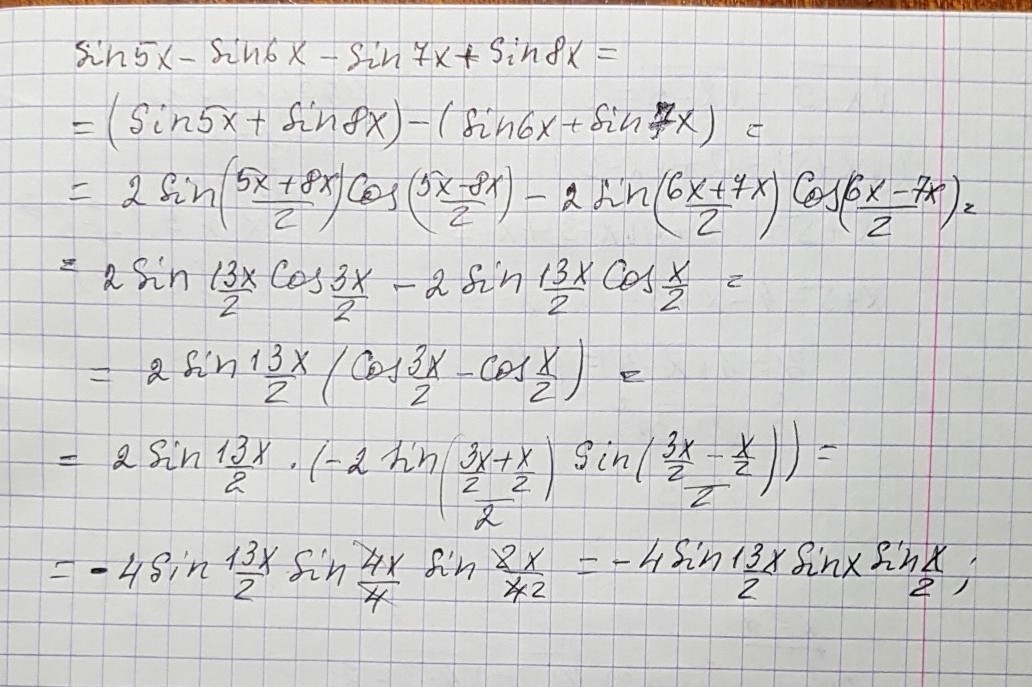 sin5x - sin6x - sin7x + sin8x =
= (sin5x + sin8x) - (sin6x + sin7x) =
= 2 sin((5x+8x)/2) cos((5x-8x)/2) - 2 sin((6x+7x)/2) cos((6x-7x)/2) =
= 2 sin 13x/2 cos 3x/2 - 2 sin 13x/2 cos x/2 =
= 2 sin 13x/2 (cos 3x/2 - cos x/2) =
= 2 sin 13x/2 · (-2 sin((3x/2 + x/2)/2) sin((3x/2 - x/2)/2)) =
= -4 sin 13x/2 sin 4x/4 sin 2x/42 = -4 sin 13x/2 sinx sin x/2 ;